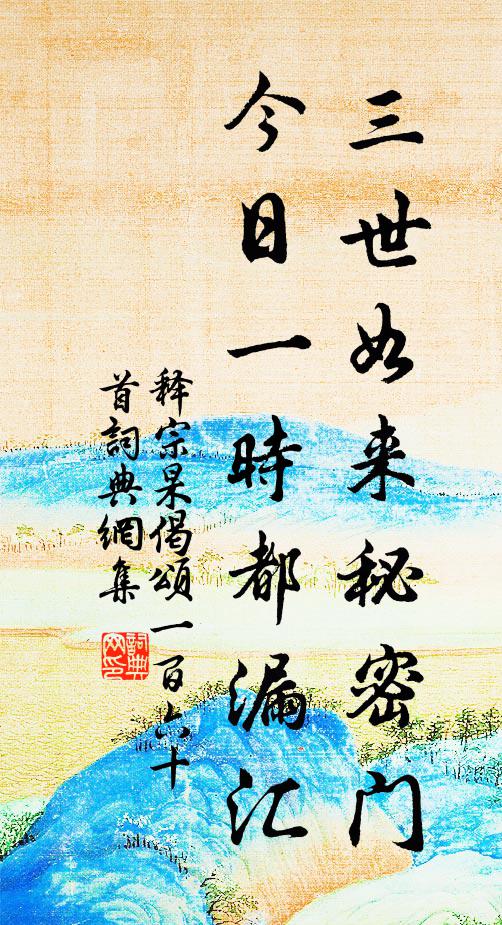 三世如来秘密门
今日一時都漏汇
释宗杲偈頌一百六十
首詞典網集
詞典
网印